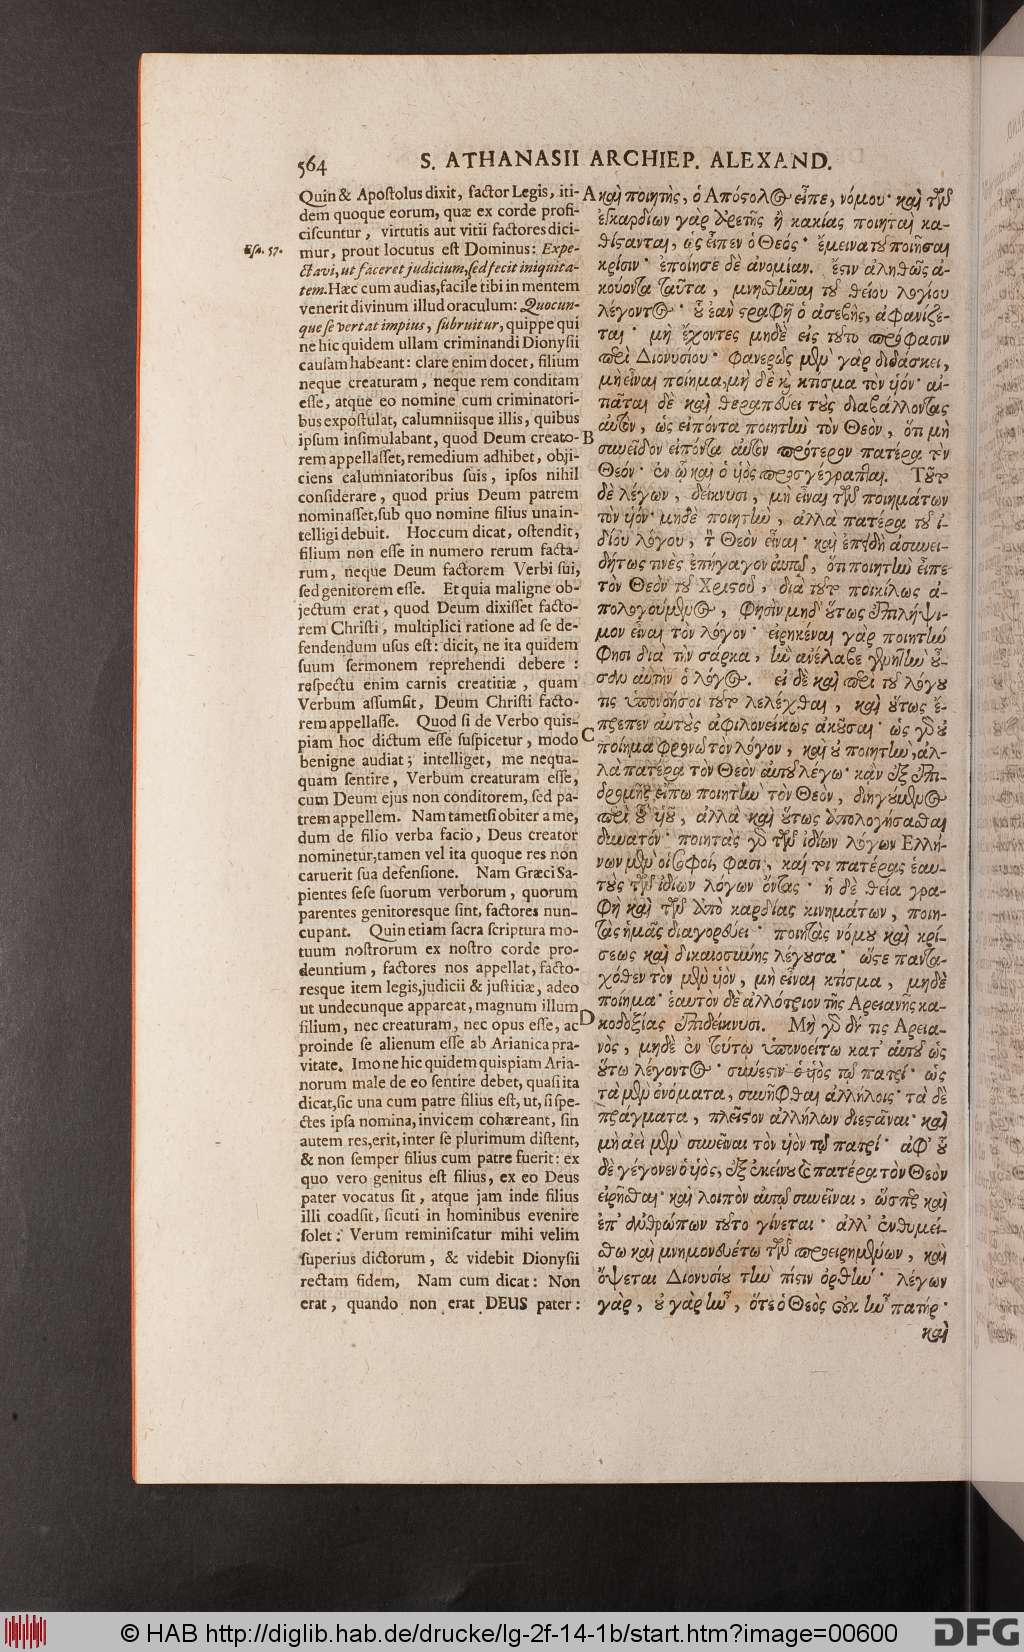 564
S. ATHANASII ARCHIEP. ALEXAND.
Quin & Apoſtolus dixit, factor Legis, iti-
dem quoque eorum, quæ ex corde profi-
ciſcuntur, virtutis aut vitii factores dici-
Eſa. 57.
mur, prout locutus eſt Dominus: Expe-
ctavi, ut faceret judicium, ſed fecit iniquita-
tem. Hæc cum audias, facile tibi in mentem
venerit divinum illud oraculum: Quocun-
que ſe vertat impius, ſubruitur, quippe qui
ne hic quidem ullam criminandi Dionyſii
cauſam habeant: clare enim docet, filium
neque creaturam, neque rem conditam
eſſe, atque eo nomine cum criminatori-
bus expoſtulat, calumniisque illis, quibus
ipſum inſimulabant, quod Deum creato-
rem appellaſſet, remedium adhibet, obji-
ciens calumniatoribus ſuis, ipſos nihil
conſiderare, quod prius Deum patrem
nominaſſet, ſub quo nomine filius una in-
telligi debuit. Hoc cum dicat, oſtendit,
filium non eſſe in numero rerum facta-
rum, neque Deum factorem Verbi ſui,
ſed genitorem eſſe. Et quia maligne ob-
jectum erat, quod Deum dixiſſet facto-
rem Chriſti, multiplici ratione ad ſe de-
fendendum uſus eſt: dicit, ne ita quidem
ſuum ſermonem reprehendi debere:
reſpectu enim carnis creatitiæ, quam
Verbum aſſumſit, Deum Chriſti facto-
rem appellaſſe. Quod ſi de Verbo quis-
piam hoc dictum eſſe ſuſpicetur, modo
benigne audiat; intelliget, me nequa-
quam ſentire, Verbum creaturam eſſe,
cum Deum ejus non conditorem, ſed pa-
trem appellem. Nam tametſi obiter a me,
dum de filio verba facio, Deus creator
nominetur, tamen vel ita quoque res non
caruerit ſua defenſione. Nam Græci Sa-
pientes ſeſe ſuorum verborum, quorum
parentes genitoresque ſint, factores nun-
cupant. Quin etiam ſacra ſcriptura mo-
tuum noſtrorum ex noſtro corde pro-
deuntium, factores nos appellat, facto-
resque item legis, judicii & juſtitiæ, adeo
ut undecunque appareat, magnum illum
filium, nec creaturam, nec opus eſſe, ac
proinde ſe alienum eſſe ab Arianica pra-
vitate. Imo ne hic quidem quispiam Aria-
norum male de eo ſentire debet, quaſi ita
dicat, ſic una cum patre filius eſt, ut, ſi ſpe-
ctes ipſa nomina, invicem cohæreant, ſin
autem res, erit, inter ſe plurimum diſtent,
& non ſemper filius cum patre fuerit: ex
quo vero genitus eſt filius, ex eo Deus
pater vocatus ſit, atque jam inde filius
illi coadſit, ſicuti in hominibus evenire
ſolet: Verum reminiſcatur mihi velim
ſuperius dictorum, & videbit Dionyſii
rectam fidem, Nam cum dicat: Non
erat, quando non erat DEUS pater:
A
B
C
D
καὶ ποιητὴς, ὁ Ἀπόςολος εἶπε, νόμου· καὶ τῶν
ἐγκαρδίων γὰρ ἀρετῆς ἢ κακίας ποιηταὶ κα-
θίςανται, ὡς εἶπεν ὁ Θεός· ἔμεινα τοῦ ποιῆσαι
κρίσιν· ἐποίησε δὲ ἀνομίαν. ἔςιν ἀληθῶς ἀ-
κούοντα ταῦτα, μνησθῆναι τοῦ θείου λογίου
λέγοντος· οὗ ἐὰν ςραφῇ ὁ ἀσεβὴς, ἀφανίζε-
ται· μὴ ἔχοντες μηδὲ εἰς τοῦτο πρόφασιν
περὶ Διονυσίου· φανερῶς μὲν γὰρ διδάσκει,
μὴ εἶναι ποίημα, μὴ δὲ καὶ κτίσμα τὸν υἱόν· αἰ-
τιᾶται δὲ καὶ θεραπεύει τοὺς διαβάλλοντας
αὐτὸν, ὡς εἰπόντα ποιητὴν τὸν Θεὸν, ὅτι μὴ
συνεῖδον εἰπόντα αὐτὸν πρότερον πατέρα τὸν
Θεόν· ἐν ᾧ καὶ ὁ υἱὸς προσγέγραπται. Τοῦτο
δὲ λέγων, δείκνυσι, μὴ εἶναι τῶν ποιημάτων
τὸν υἱόν· μηδὲ ποιητὴν, ἀλλὰ πατέρα τοῦ ἰ-
δίου λόγου, τὸν Θεὸν εἶναι· καὶ ἐπειδὴ ἀσυνει-
δήτως τινὲς ἐπήγαγον αὐτῷ, ὅτι ποιητὴν εἶπε
τὸν Θεὸν τοῦ Χριςοῦ, διὰ τοῦτο ποικίλως ἀ-
πολογούμενος, φησὶν μηδ' οὕτως ἐπιλήψι-
μον εἶναι τὸν λόγον· εἰρηκέναι γὰρ ποιητὴν
φησι διὰ τὴν σάρκα, ἣν ἀνέλαβε γενητὴν οὖ-
σαν αὐτὴν ὁ λόγος. εἰ δὲ καὶ περὶ τοῦ λόγου
τις ὑπονοήσοι τοῦτο λελέχθαι, καὶ οὕτως ἔ-
πρεπεν αὐτοὺς ἀφιλονείκως ἀκοῦσαι· ὡς γὰρ οὐ
ποίημα φρονῶ τὸν λόγον, καὶ οὐ ποιητὴν, ἀλ-
λὰ πατέρα τὸν Θεὸν αὐτοῦ λέγω· κἂν ἐξ ἐπι-
δρομῆς εἴπω ποιητὴν τὸν Θεὸν, διηγούμενος
περὶ τοῦ υἱοῦ, ἀλλὰ καὶ οὕτως ἀπολογήσασθαι
δυνατόν· ποιητὰς γὰρ τῶν ἰδίων λόγων Ἑλλή-
νων μὲν οἱ σοφοί, φασι, καί τοι πατέρας ἑαυ-
τοὺς τῶν ἰδίων λόγων ὄντας· ἡ δὲ θεία γρα-
φὴ καὶ τῶν ἀπὸ καρδίας κινημάτων, ποιη-
τὰς ἡμᾶς διαγορεύει· ποιητὰς νόμου καὶ κρί-
σεως καὶ δικαιοσύνης λέγουσα· ὥςε παντα-
χόθεν τὸν μὲν υἱὸν, μὴ εἶναι κτίσμα, μηδὲ
ποίημα· ἑαυτὸν δὲ ἀλλότριον τῆς Ἀρειανῆς κα-
κοδοξίας ἐπιδείκνυσι. Μὴ γὰρ δή τις Ἀρεια-
νὸς, μηδὲ ἐν τούτῳ ὑπονοείτω κατ' αὐτοῦ ὡς
οὕτω λέγοντος· σύνεςιν ὁ υἱὸς τῷ πατρί· ὡς
τὰ μὲν ὀνόματα, συνῆφθαι ἀλλήλοις· τὰ δὲ
πράγματα, πλεῖςον ἀλλήλων διεςᾶναι· καὶ
μὴ ἀεὶ μὲν συνεῖναι τὸν υἱὸν τῷ πατρί· ἀφ' οὗ
δὲ γέγονεν ὁ υἱὸς, ἐξ ἐκείνου καὶ πατέρα τὸν Θεὸν
εἰρῆσθαι· καὶ λοιπὸν αὐτῷ συνεῖναι, ὥσπερ καὶ
ἐπ' ἀνθρώπων τοῦτο γίνεται· ἀλλ' ἐνθυμεί-
σθω καὶ μνημονευέτω τῶν προειρημένων, καὶ
ὄψεται Διονυσίου τὴν πίςιν ὀρθήν· λέγων
γὰρ, οὐ γὰρ ἦν, ὅτε ὁ Θεὸς οὐκ ἦν πατήρ·
καὶ
© HAB http://diglib.hab.de/drucke/lg-2f-14-1b/start.htm?image=00600
DFG